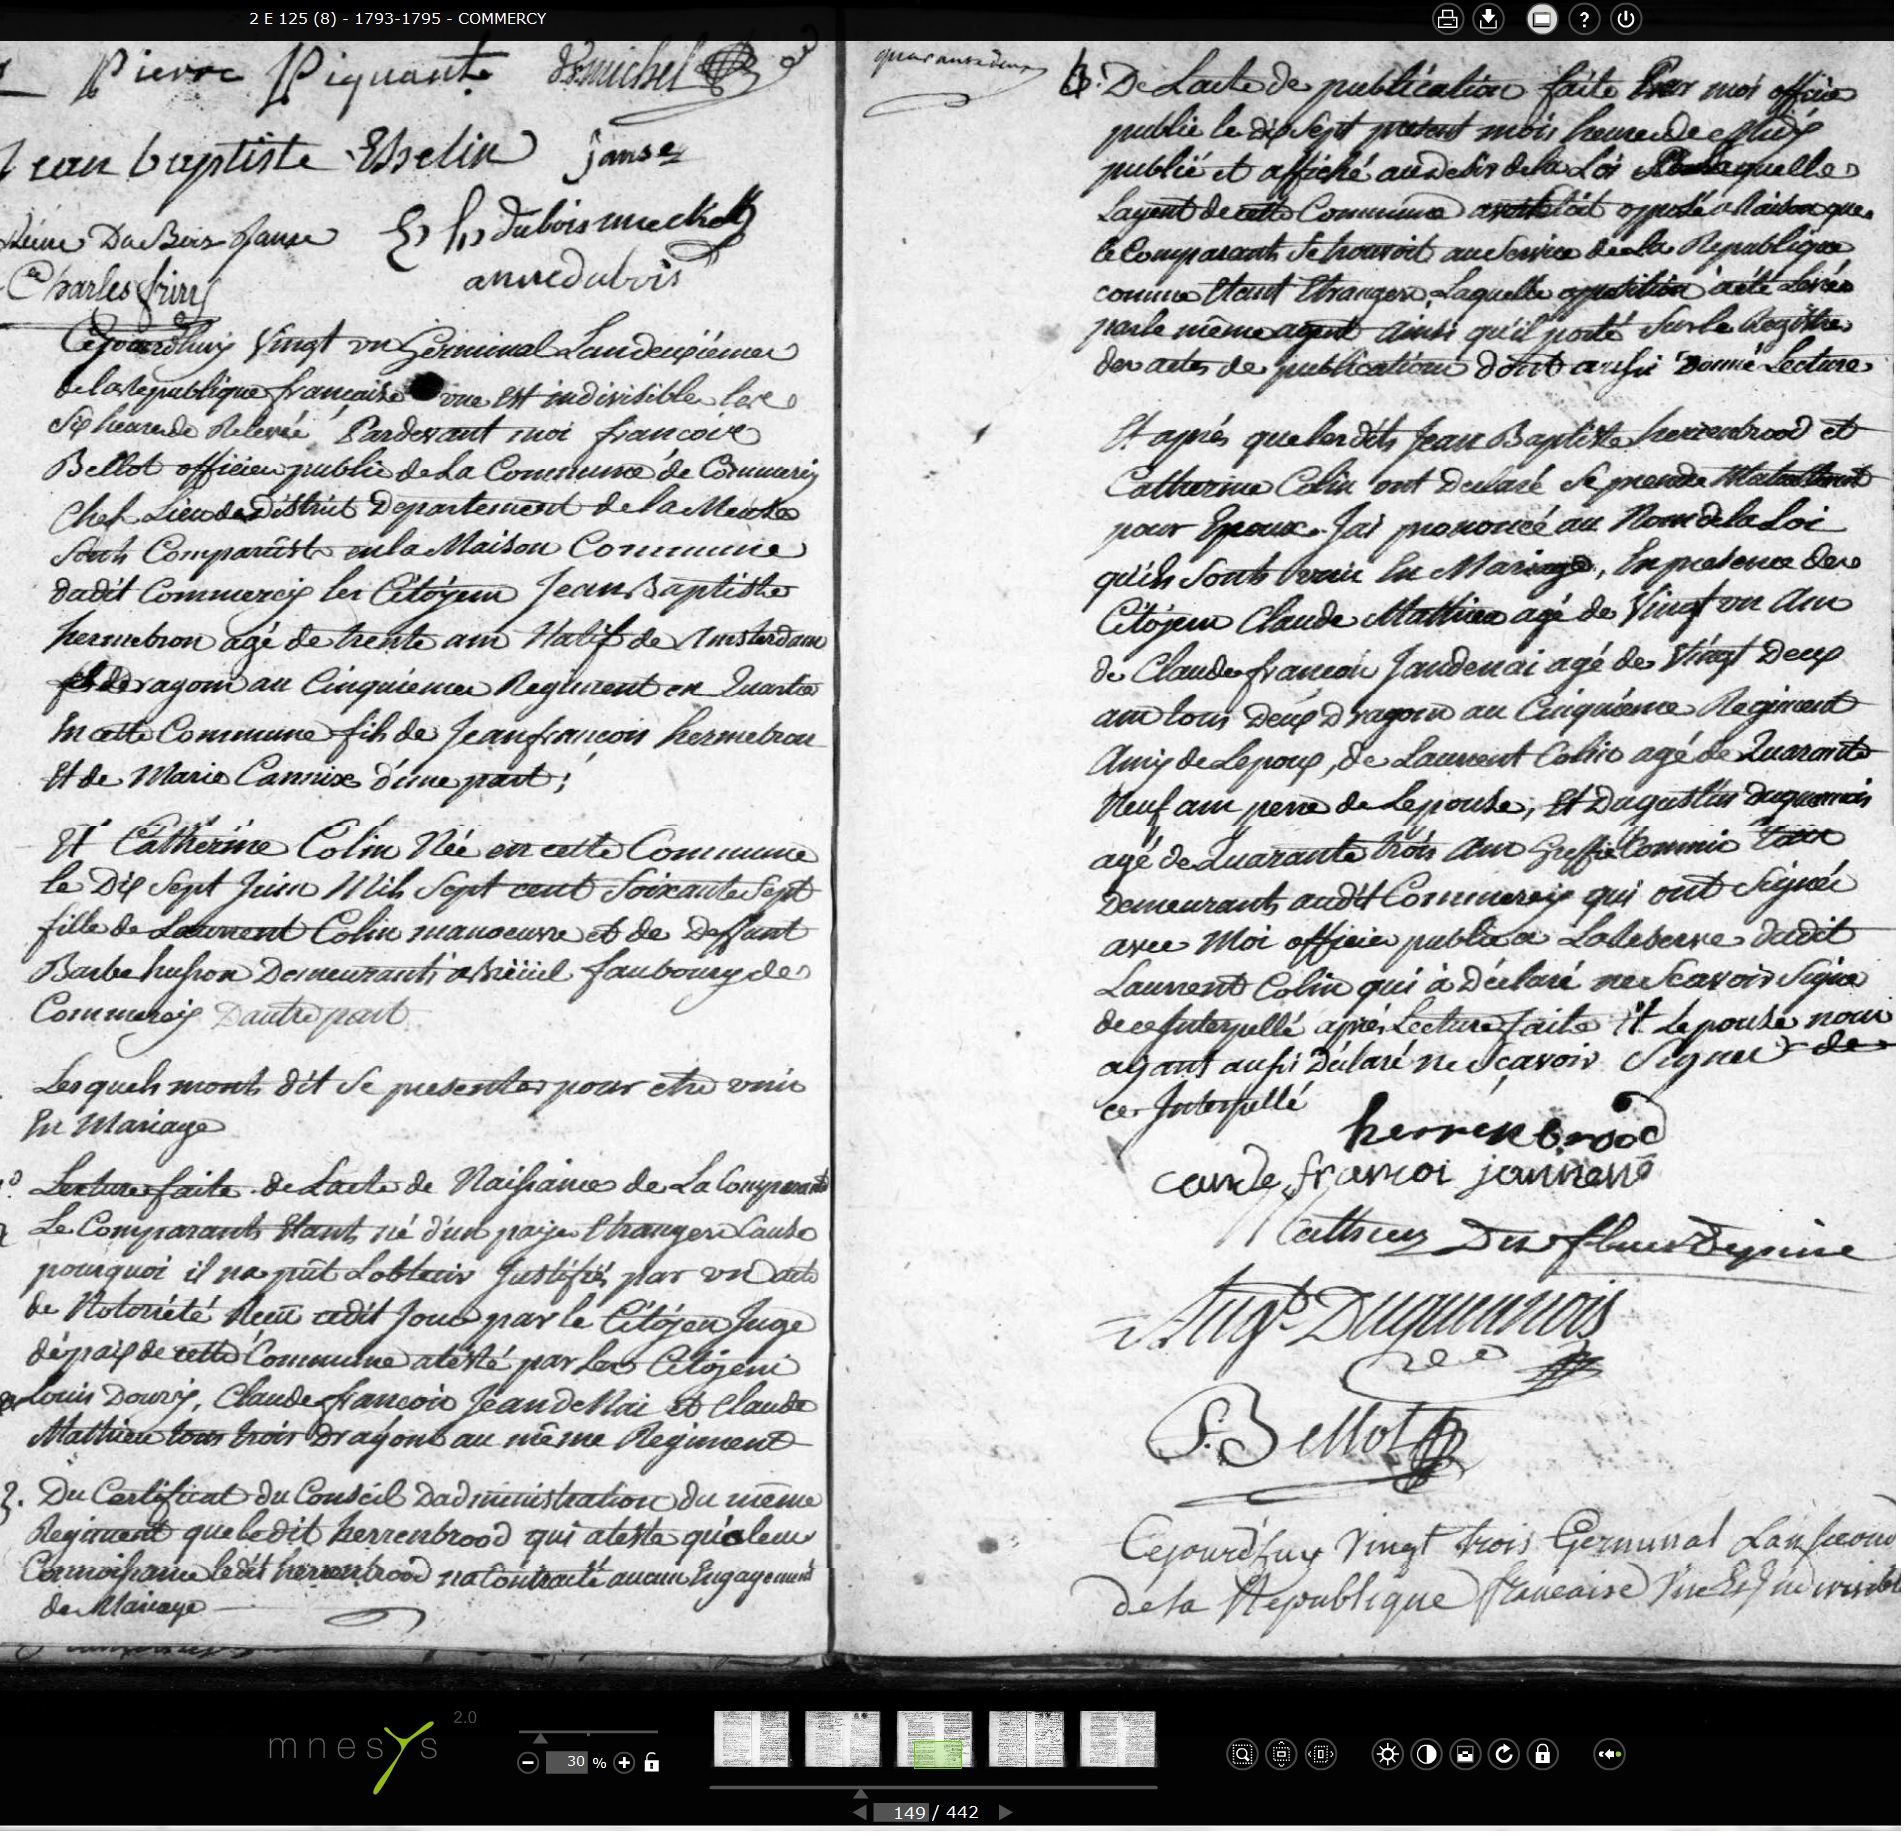 2 E 125 (8) - 1793-1795 - COMMERCY
Pierre Piquante Vr michel
Jean baptiste Esselin janse
Reine Du Bois Janse dubois mechel
Charles firry anne dubois
Cejourdhuy Vingt un Germinal Landeuxiéme
dela republique francaise une Est indivisible les
Six heure de Relevée Pardevant moi francois
Bellot officier public de La Commune de Commercy
Chef Lieu de District Departement de la Meuse
Sont Comparûst en la Maison Commune
dudit Commercy les Citoyen Jean Baptiste
hermebron agé de trente ans Natif de Amsterdam
dragons au Cinquiéme Regiment en Quartie
En cette Commune fils de Jean francois hermebron
Et de Marie Cannixe d'une part ;
Et Catherine Colin Née en cette Commune
le Dix Sept Juin Mils Sept cent Soixante Sept
fille de Laurent Colin manoeuvre et de Deffunt
Barbe husson Demeurants a Breüil faubourg de
Commercy Dautre part
Lesquels monts dit Se presenter pour etre unis
En Mariage
1° Lecture faite de Lacte de Naissance de La Comparante
Le Comparants Etant né d'un païs Etrangere Cause
pourquoi il na pût Lobtenir Justifié par un acte
de Notoriété Recu cedit Jour par le Citoyen Juge
de paix de cette Commune atesté par les Citoyens
Louis Doury, Claude francois Jean de Nai et Claude
Mathieu tous trois Dragons au même Regiment
2. Du Certificat du Conseil Dadministration du même
Regiment que ledit herrenbrood qui ateste qu'a leur
Connoissance ledit herrenbrood na Contracté aucun Engagement
de Mariage
quarante deux
3. De Lacte de publication faite Par moi officier
public le dix Sept present mois heure de Midy
publié et affiché au desir de la Loi a laquelle
Lagent de cette Commune s'etoit opposé a Raison que
le Comparants Se trouvoit au Service de la Republique
comme Etant Etrangere, Laquelle opposition a été Levée
par le même agent ainsi qu'il porté Sur le Registre
des actes de publication dont aussi Donné Lecture
Et aprés que lesdits Jean Baptiste herrenbrood et
Catherine Colin ont Declaré Se prendre Mutuellement
pour Epoux. Jai prononcé au Nom de la Loi
qu'ils Sonts unie En Mariage, En presence des
Citoyen Claude Mathieu agé de Vingt un Ans
de Claude francois Jandenai agé de Vingt Deux
ans tous Deux Dragons au Cinquiéme Regiment
Amis de Lepoux, de Laurent Colin agé de Quarante
Neuf ans pere de Lepouse, Et Dagustin duquenois
agé de Quarante trois Ans Greffie Commis Tous
Demeurants audit Commercy qui ont Signés
avec Moi officier public a La Reserve dudit
Laurent Colin qui à Déclaré ne Scavoir Signe
de ce Interpellé aprés Lecture faite Et Lepouse nous
ayant aussi Déclaré ne Scavoir Signer de
ce Interpellé
herrenbrood
caude francoi jannene
Mathieu Dit fleur Depine
Aug. Duquennois
F. Bellot
Cejourd'huy vingt trois Germinal Lan Second
de la Republique francaise Une Et Indivisible
mnesys 2.0
30 %
149 / 442